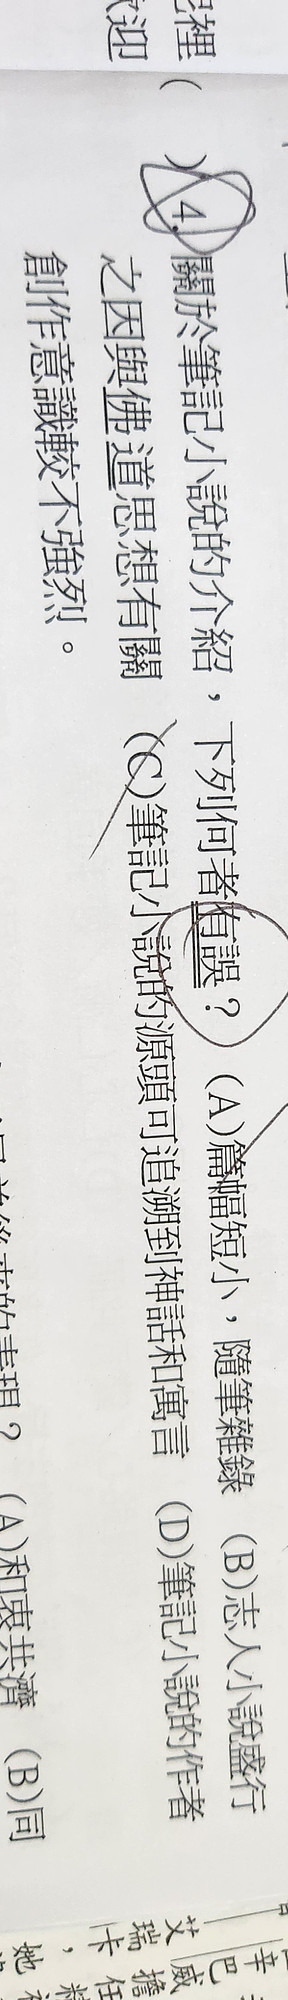 ( )4.關於筆記小說的介紹，下列何者有誤？ (A)篇幅短小，隨筆雜錄 (B)志人小說盛行
之因與佛道思想有關 (C)筆記小說的源頭可追溯到神話和寓言 (D)筆記小說的作者
創作意識較不強烈。
(A)和衷共濟 (B)同